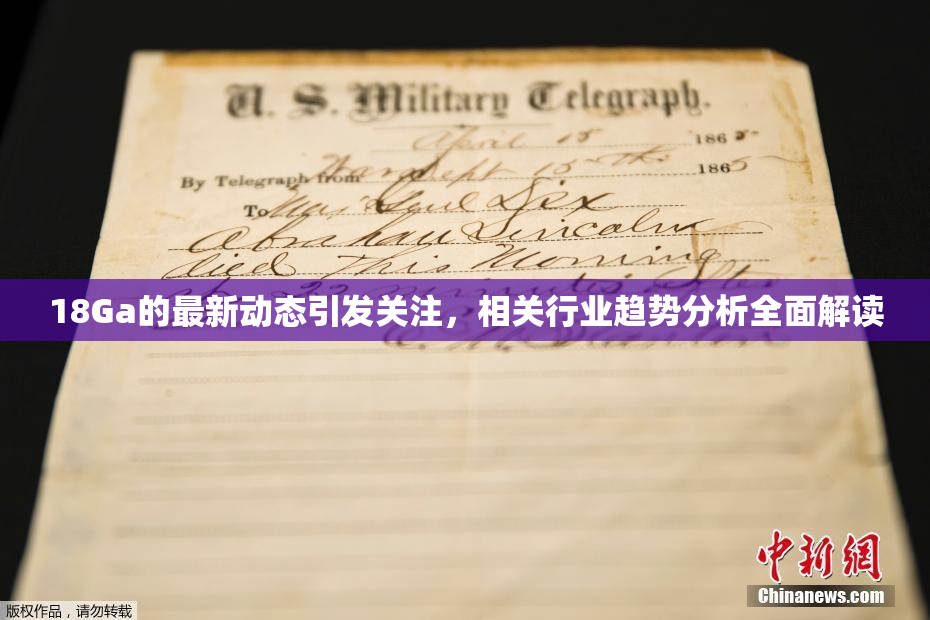 U. S. Military Telegraph.
April 15 1865
By Telegraph from War Dept 15th 1865
To Maj Genl Dix
Abraham Lincoln
died This Morning
22 minutes after
18Ga的最新动态引发关注，相关行业趋势分析全面解读
中新网
Chinanews.com
版权作品，请勿转载